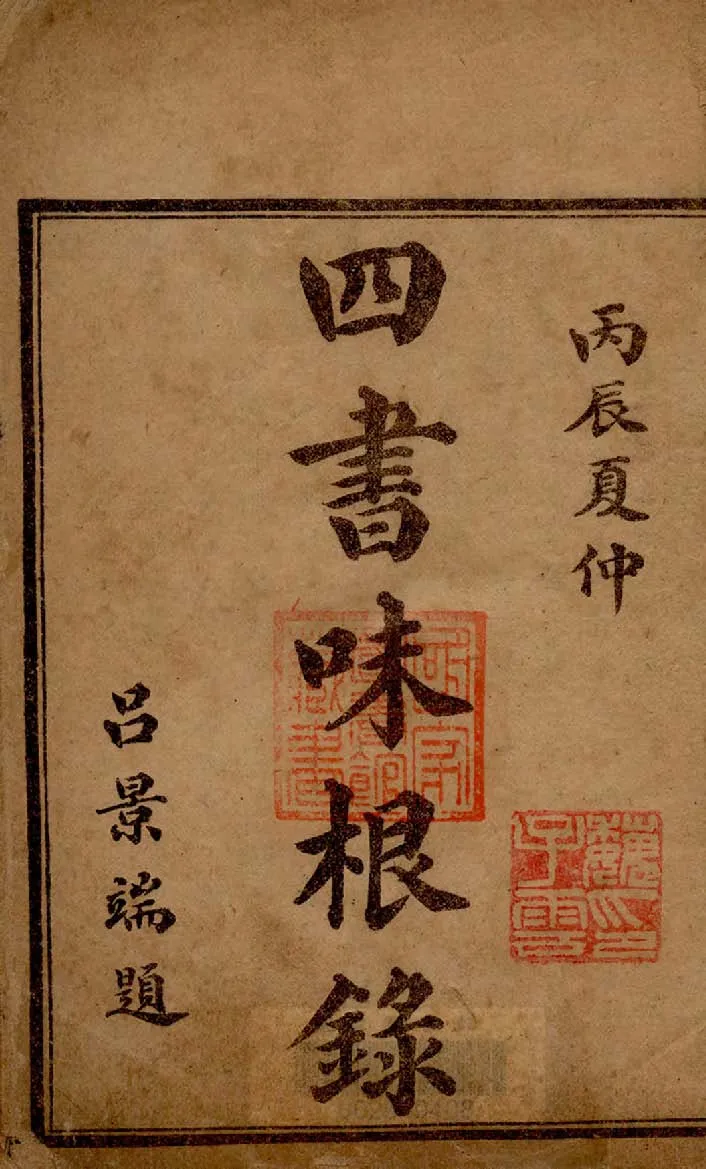 丙辰夏仲
四書味根錄
呂景端題